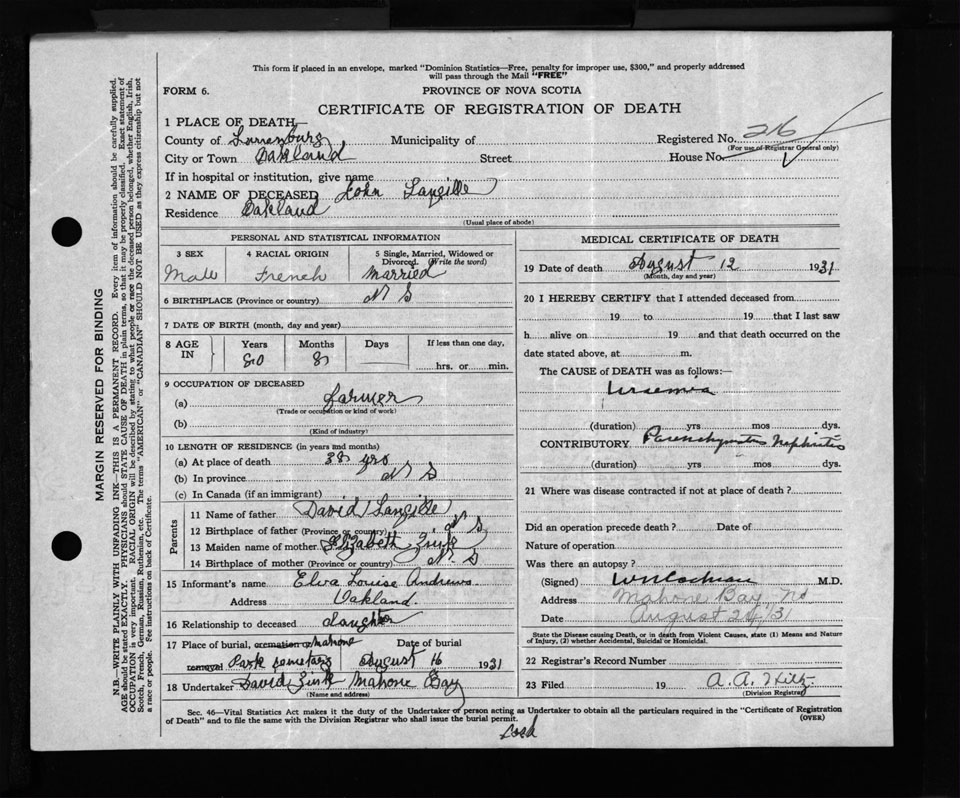 This form if placed in an envelope, marked "Dominion Statistics—Free, penalty for improper use, $300," and properly addressed
will pass through the Mail "FREE"
FORM 6.
PROVINCE OF NOVA SCOTIA
CERTIFICATE OF REGISTRATION OF DEATH
1 PLACE OF DEATH
County of Lunenburg Municipality of Registered No. 216
(For use of Registrar General only)
City or Town Oakland Street House No.
If in hospital or institution, give name
2 NAME OF DECEASED John Langille
Residence Oakland
(Usual place of abode)
PERSONAL AND STATISTICAL INFORMATION
3 SEX 4 RACIAL ORIGIN 5 Single, Married, Widowed or
Divorced. (Write the word)
Male French Married
6 BIRTHPLACE (Province or country) N S
7 DATE OF BIRTH (month, day and year)
8 AGE IN Years Months Days If less than one day,
80 8 hrs. or min.
9 OCCUPATION OF DECEASED
(a) farmer
(Trade or occupation or kind of work)
(b)
(Kind of industry)
10 LENGTH OF RESIDENCE (in years and months)
(a) At place of death 38 yrs
(b) In province N S
(c) In Canada (if an immigrant)
Parents
11 Name of father David Langille
12 Birthplace of father (Province or country) N S
13 Maiden name of mother Elizabeth Zink
14 Birthplace of mother (Province or country) N. S
15 Informant's name Elva Louise Andrews
Address Oakland.
16 Relationship to deceased daughter
17 Place of burial, cremation or Mahone Date of burial
removal Park Cemetary August 16 1931
18 Undertaker David Zink Mahone Bay
(Name and address)
MEDICAL CERTIFICATE OF DEATH
19 Date of death August 12 1931
(Month, day and year)
20 I HEREBY CERTIFY that I attended deceased from
19 to 19 that I last saw
h alive on 19 and that death occurred on the
date stated above, at m.
The CAUSE of DEATH was as follows:—
Uraemia
(duration) yrs mos dys.
CONTRIBUTORY Parenchymatous Nephritis
(duration) yrs mos dys.
21 Where was disease contracted if not at place of death?
Did an operation precede death? Date of
Nature of operation
Was there an autopsy?
(Signed) W N Cochran M.D.
Address Mahone Bay, NS
Date August 24/31
State the Disease causing Death, or in death from Violent Causes, state (1) Means and Nature
of Injury, (2) whether Accidental, Suicidal or Homicidal.
22 Registrar's Record Number
23 Filed 19 A. A. Hiltz
(Division Registrar)
Sec. 46—Vital Statistics Act makes it the duty of the Undertaker or person acting as Undertaker to obtain all the particulars required in the "Certificate of Registration
of Death" and to file the same with the Division Registrar who shall issue the burial permit.
(OVER)
MARGIN RESERVED FOR BINDING
N.B.—WRITE PLAINLY WITH UNFADING INK—THIS IS A PERMANENT RECORD. Every item of information should be carefully supplied.
AGE should be stated EXACTLY. PHYSICIANS should STATE CAUSE OF DEATH in plain terms, so that it may be properly classified. Exact statement of
OCCUPATION is very important. RACIAL ORIGIN will be described by stating to what people or race the deceased person belonged, whether English, Irish,
Scotch, French, German, Russian, Ruthenian, etc. The terms "AMERICAN" or "CANADIAN" SHOULD NOT BE USED as they express citizenship but not
a race or people. See instructions on back of Certificate.